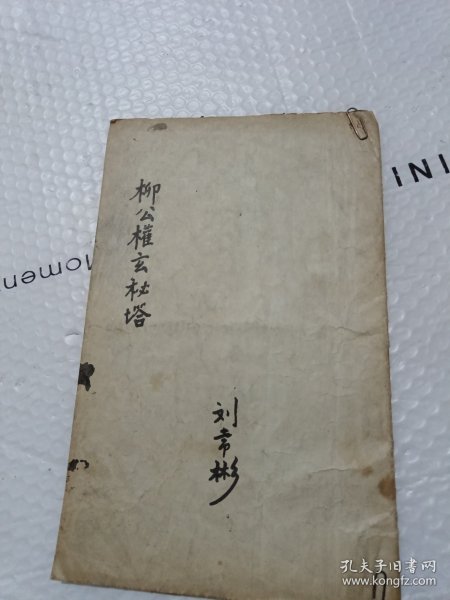 柳公權玄秘塔
刘常彬
INI
Momen
孔夫子旧书网
www.kongfz.com